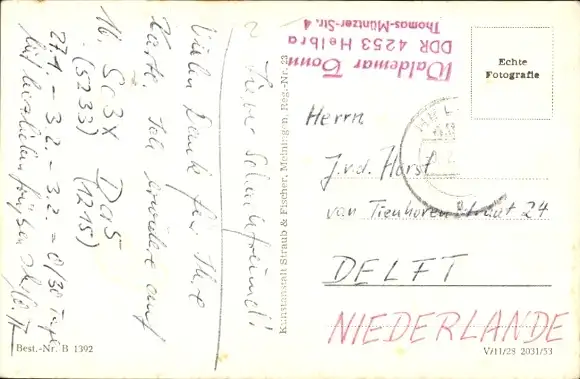 Lieber Schachfreund!
Vielen Dank für Ihre
Karte. Ich erwidere auf
16. Sc3x Da5
(5233) (1215)
27.1. – 3.2. – 3.2. = 0/30 Tage
Mit herzlichen Grüßen Ihr
Best.-Nr. B 1392
Kunstanstalt Straub & Fischer, Meiningen, Reg.-Nr. 23
Waldemar Tonn
DDR 4253 Helbra
Thomas-Müntzer-Str. 4
Echte
Fotografie
Herrn
J.v.d. Horst
van Tienhoven Straat 24
DELFT
NIEDERLANDE
V/11/28 2031/53